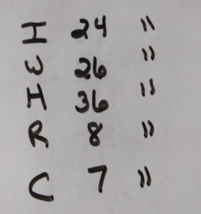 I 24 "
W 26 "
H 36 "
R 8 "
C 7 "